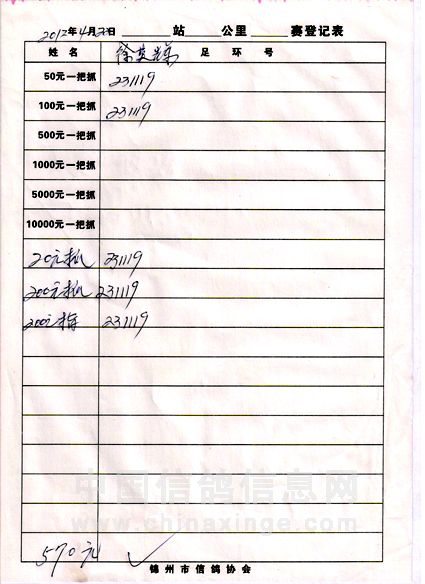 2012年4月 日 站 公里 赛登记表
姓名 徐英 足环号
50元一把抓 231119
100元一把抓 231119
500元一把抓
1000元一把抓
5000元一把抓
10000元一把抓
20元 231119
200元 231119
200元 231119
中国信鸽信息网
www.chinaxinge.com
570元 ✓
锦州市信鸽协会